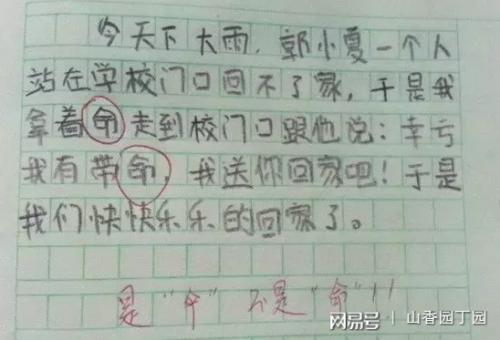 今天下大雨，郭小夏一个人
站在学校门口回不了家，于是我
拿着命走到校门口跟他说：幸亏
我有带命，我送你回家吧！于是
我们快快乐乐的回家了。
是“伞”不是“命”！！
网易号 | 山香园丁园